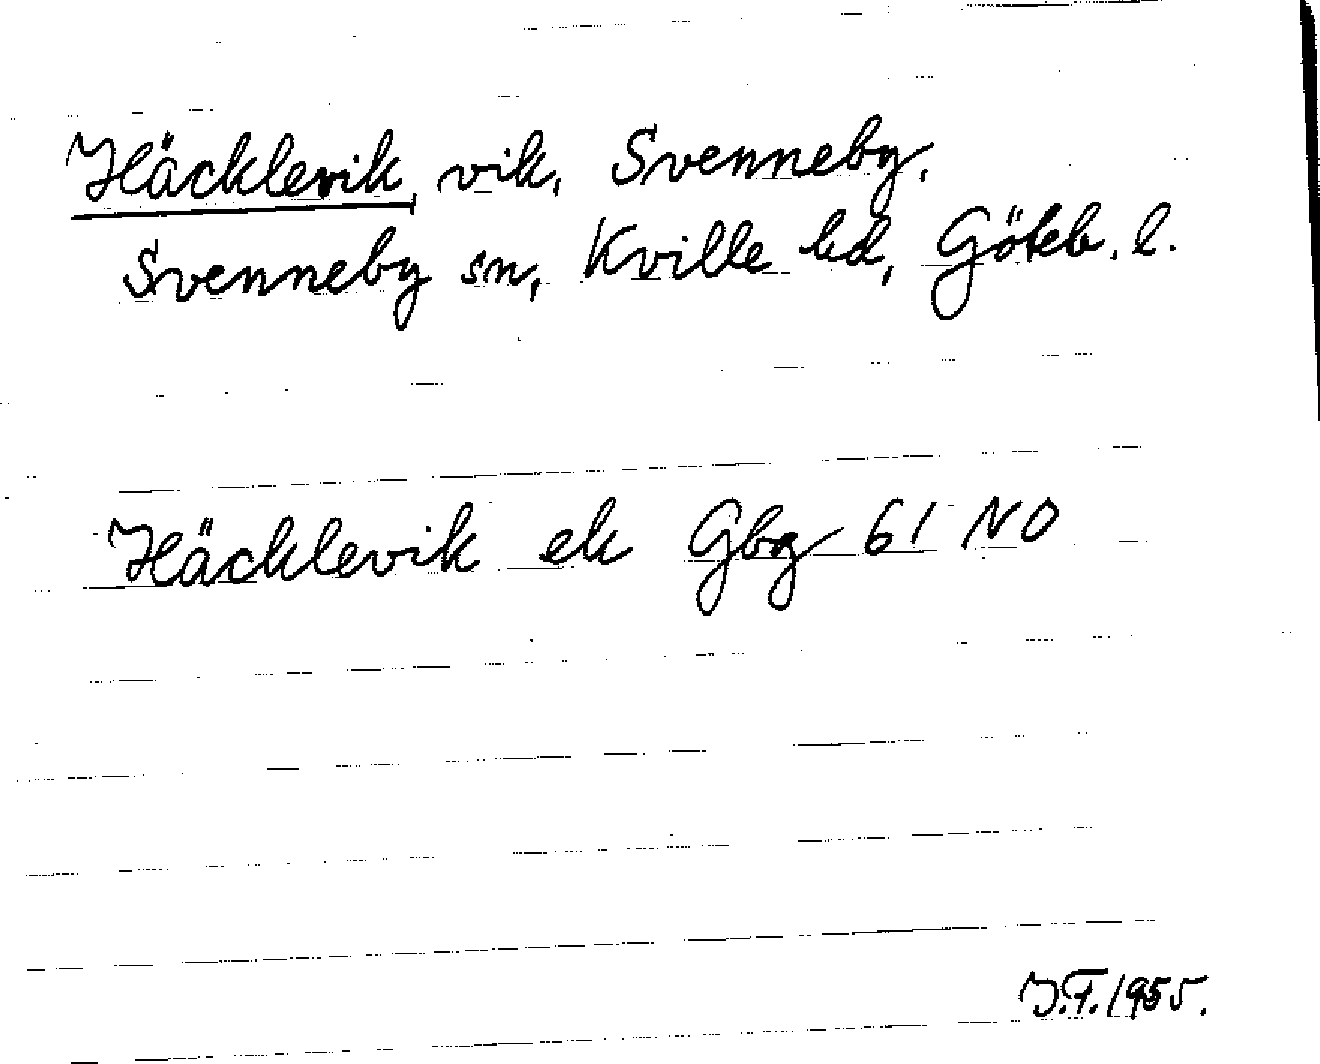 Häcklevik, vik, Svenneby,
Svenneby sn, Kville hd, Göteb. l.
Häcklevik ek Gbg 61 NO
J.F. 1955.